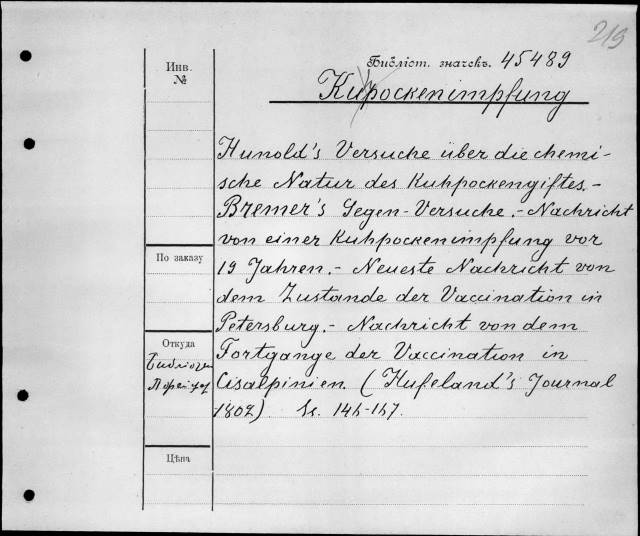 219
Инв.
№
Библіот. значекъ. 45489
Kuhpockenimpfung
Hunold's Versuche über die chemi-
sche Natur des Kuhpockengiftes.-
Bremer's Gegen-Versuche.-Nachricht
von einer Kuhpockenimpfung vor
По заказу
19 Jahren.- Neueste Nachricht von
dem Zustande der Vaccination in
Petersburg.- Nachricht von dem
Откуда
Fortgange der Vaccination in
Cisalpinien. (Hufeland's Journal
1802)
Цѣна